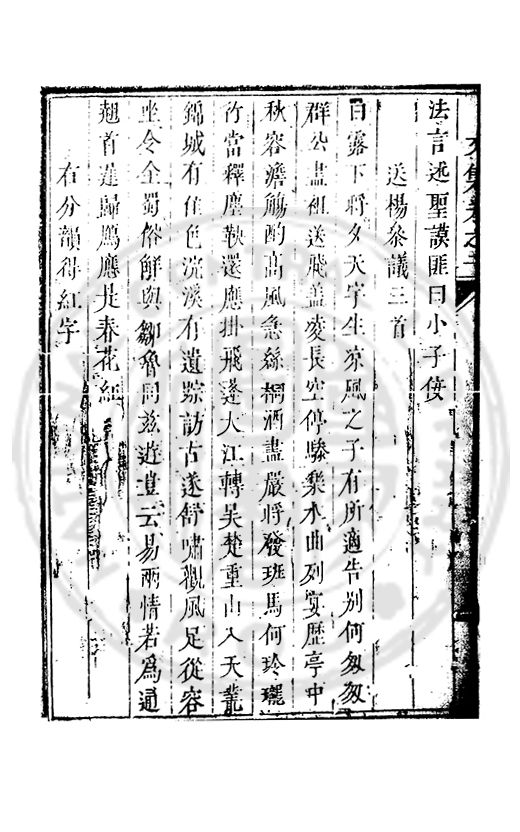 法言述聖謨匪曰小子佞
送楊叅議三首
白露下將夕天宇生凉風之子有所適告别何匆匆
群公盡祖送飛盖凌長空停驂樂水曲列宴歷亭中
秋容澹觴酌高風急絲桐酒盡嚴將發班馬何玲瓏
竹當釋塵鞅還應掛飛蓬大江轉吴楚重山入天叢
錦城有佳色浣溪有遺踪訪古遂舒嘯觀風足從容
坐令全蜀俗觧與鄒魯同兹遊豈云易兩情若為通
翹首遲歸鴈應是春花紅
右分韻得紅字